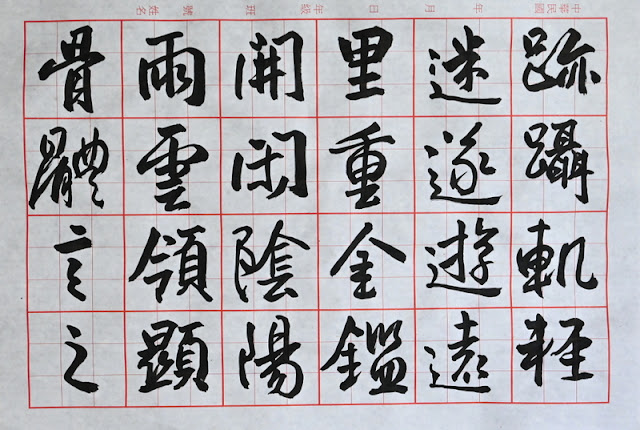 中華民國 年 月 日 年級 班 號 姓名
跡躡軌輕
迷遂遊遠
里重金鑑
開閑陰陽
雨雲領顯
骨體言之